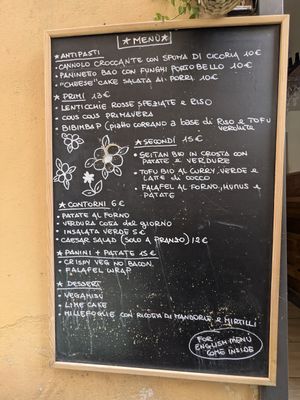 ★MENÙ★
★ANTIPASTI
• CANNOLO CROCCANTE CON SPUMA DI CICORIA 10€
• PANINETO BAO CON FUNGHI PORTOBELLO 10€
• "CHEESE" CAKE SALATA AI PORRI 10€
★PRIMI 13€
• LENTICCHIE ROSSE SPEZIATE E RISO
• COUS COUS PRIMAVERA
• BIBIMBAP (piatto COREANO a base di Riso e TOFU
VERDURE
★SECONDI 15€
• SEITAN BIO IN CROSTA CON
PATATE E VERDURE
• TOFU BIO AL CURRY, VERDE E
LATTE DI COCCO
• FALAFEL AL FORNO, HUMUS E
PATATE
★CONTORNI 6€
• PATATE AL FORNO
• VERDURA COTTA del GIORNO
• INSALATA VERDE 5€
• CAESAR SALAD (SOLO A PRANZO) 12€
★PANINI + PATATE 15€
• CRISPY VEG NO BACON
• FALAFEL WRAP
★DESSERT
• VEGAMISÙ
• LIME CAKE
• MILLEFOGLIE CON RICOTTA DI MANDORLE E MIRTILLI
FOR
ENGLISH MENU
COME INSIDE